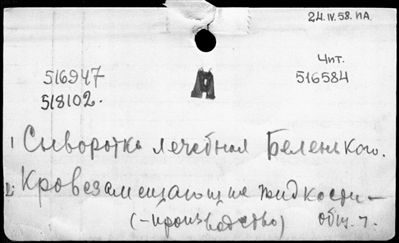 24.IV.58. НА
516947
518102.
А
Чит.
516584
1 Сыворотка лечебная Беленького.
2. Кровезамещающие жидкости —
(-производство) общ. ч.